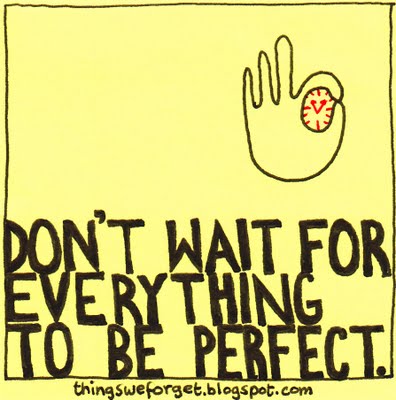 DON'T WAIT FOR
EVERYTHING
TO BE PERFECT.
thingsweforget.blogspot.com